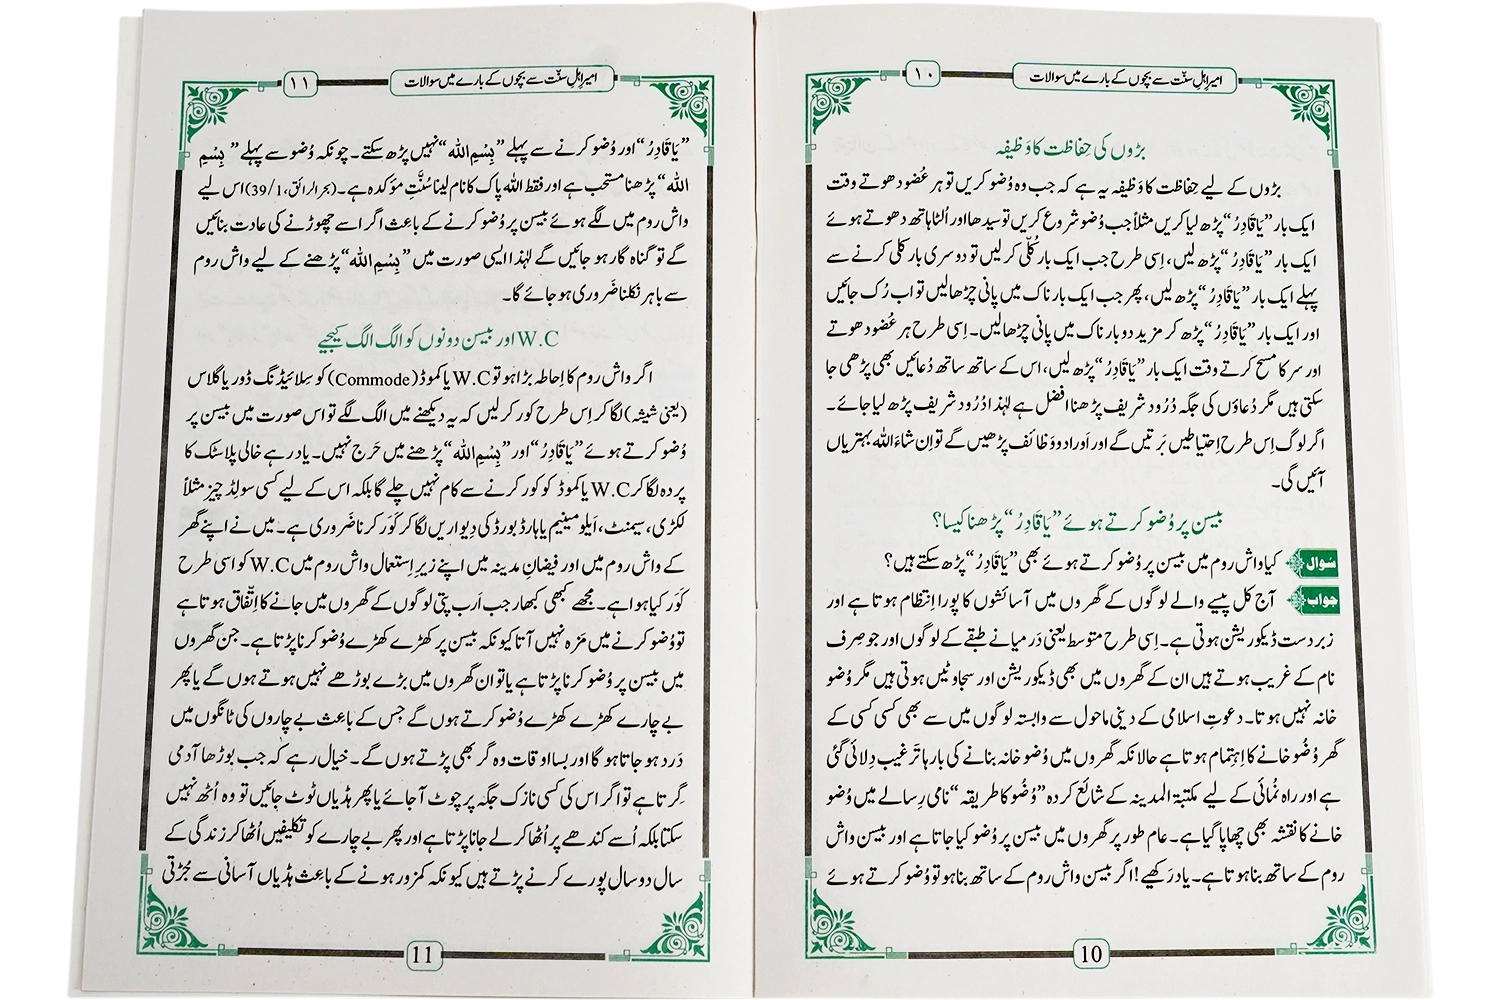 امیرِ اہلِ سنّت سے بچوں کے بارے میں سوالات
۱۰
بڑوں کی حِفاظت کا وَظیفہ
بڑوں کے لیے حفاظت کا وَظیفہ یہ ہے کہ جب وہ وُضو کریں تو ہر عُضو دھوتے وقت
ایک بار ”یَا قَادِرُ“ پڑھ لیا کریں مثلاً جب وُضو شروع کریں تو سیدھا اور اُلٹا ہاتھ دھوتے ہوئے
ایک بار ”یَا قَادِرُ“ پڑھ لیں، اِسی طرح جب ایک بار کُلّی کرلیں تو دوسری بار کلی کرنے سے
پہلے ایک بار ”یَا قَادِرُ“ پڑھ لیں، پھر جب ایک بار ناک میں پانی چڑھالیں تو اب رُک جائیں
اور ایک بار ”یَا قَادِرُ“ پڑھ کر مزید دو بار ناک میں پانی چڑھالیں۔ اِسی طرح ہر عُضو دھوتے
اور سر کا مسح کرتے وقت ایک بار ”یَا قَادِرُ“ پڑھ لیں، اس کے ساتھ ساتھ دُعائیں بھی پڑھی جا
سکتی ہیں مگر دُعاؤں کی جگہ دُرُود شریف پڑھنا افضل ہے لہٰذا دُرُود شریف پڑھ لیا جائے۔
اگر لوگ اِس طرح احتیاطیں بَرتیں گے اور اَوراد و وَظائف پڑھیں گے تو اِن شاءَ اللہ بہتریاں
آئیں گی۔
بیسن پر وُضو کرتے ہوئے ”یَا قَادِرُ“ پڑھنا کیسا؟
سُوال کیا واش روم میں بیسن پر وُضو کرتے ہوئے بھی ”یَا قَادِرُ“ پڑھ سکتے ہیں؟
جواب آج کل پیسے والے لوگوں کے گھروں میں آسائشوں کا پورا اِنتظام ہوتا ہے اور
زبردست ڈیکوریشن ہوتی ہے۔ اِسی طرح متوسط یعنی دَرمیانے طبقے کے لوگوں اور جو صِرف
نام کے غریب ہوتے ہیں ان کے گھروں میں بھی ڈیکوریشن اور سجاوٹیں ہوتی ہیں مگر وُضو
خانہ نہیں ہوتا۔ دعوتِ اسلامی کے دینی ماحول سے وابستہ لوگوں میں سے بھی کسی کسی کے
گھر وُضُو خانے کا اِہتِمام ہوتا ہے حالانکہ گھروں میں وُضو خانہ بنانے کی بارہا تَرغیب دِلائی گئی
ہے اور راہ نُمائی کے لیے مکتبۃ المدینہ کے شائع کردہ ”وُضُو کا طریقہ“ نامی رِسالے میں وُضو
خانے کا نقشہ بھی چھاپا گیا ہے۔ عام طور پر گھروں میں بیسن پر وُضو کیا جاتا ہے اور بیسن واش
روم کے ساتھ بنا ہوتا ہے۔ یاد رَکھیے! اگر بیسن واش روم کے ساتھ بنا ہو تو وُضو کرتے ہوئے
10
امیرِ اہلِ سنّت سے بچوں کے بارے میں سوالات
۱۱
”یَا قَادِرُ“ اور وُضو کرنے سے پہلے ”بِسْمِ اللہ“ نہیں پڑھ سکتے۔ چونکہ وُضو سے پہلے ”بِسْمِ
اللہ“ پڑھنا مستحب ہے اور فقط اللہ پاک کا نام لینا سُنَّتِ مؤکدہ ہے۔ (بحر الرائق، 39/1) اس لیے
واش روم میں لگے ہوئے بیسن پر وُضو کرنے کے باعث اگر اسے چھوڑنے کی عادت بنائیں
گے تو گناہ گار ہو جائیں گے لہٰذا ایسی صورت میں ”بِسْمِ اللہ“ پڑھنے کے لیے واش روم
سے باہر نکلنا ضَروری ہو جائے گا۔
W.C اور بیسن دونوں کو الگ الگ کیجیے
اگر واش روم کا اِحاطہ بڑا ہو تو W.C یا کموڈ (Commode) کو سِلائیڈنگ ڈور یا گلاس
(یعنی شیشہ) لگا کر اِس طرح کور کر لیں کہ یہ دیکھنے میں الگ لگے تو اس صورت میں بیسن پر
وُضو کرتے ہوئے ”یَا قَادِرُ“ اور ”بِسْمِ اللہ“ پڑھنے میں حَرج نہیں۔ یاد رہے خالی پلاسٹک کا
پردہ لگا کر W.C یا کموڈ کو کور کرنے سے کام نہیں چلے گا بلکہ اس کے لیے کسی سولِڈ چیز مثلاً
لکڑی، سیمنٹ، اَیلومینیم یا ہارڈ بورڈ کی دِیواریں لگا کر کَوَر کرنا ضَروری ہے۔ میں نے اپنے گھر
کے واش روم میں اور فیضانِ مدینہ میں اپنے زیرِ اِستعمال واش روم میں W.C کو اسی طرح
کَوَر کیا ہوا ہے۔ مجھے کبھی کبھار جب اَرب پتی لوگوں کے گھروں میں جانے کا اِتّفاق ہوتا ہے
تو وُضو کرنے میں مَزہ نہیں آتا کیونکہ بیسن پر کھڑے کھڑے وُضو کرنا پڑتا ہے۔ جن گھروں
میں بیسن پر وُضو کرنا پڑتا ہے یا تو ان گھروں میں بڑے بوڑھے نہیں ہوتے ہوں گے یا پھر
بے چارے کھڑے کھڑے وُضو کرتے ہوں گے جس کے باعث بے چاروں کی ٹانگوں میں
دَرد ہو جاتا ہو گا اور بسا اوقات وہ گر بھی پڑتے ہوں گے۔ خیال رہے کہ جب بوڑھا آدمی
گِرتا ہے تو اگر اس کی کسی نازک جگہ پر چوٹ آجائے یا پھر ہڈیاں ٹوٹ جائیں تو وہ اُٹھ نہیں
سکتا بلکہ اُسے کندھے پر اُٹھا کر لے جانا پڑتا ہے اور پھر بے چارے کو تکلیفیں اُٹھا کر زندگی کے
سال دو سال پورے کرنے پڑتے ہیں کیونکہ کمزور ہونے کے باعث ہڈیاں آسانی سے جُڑتی
11